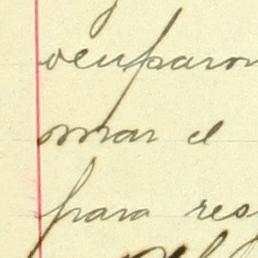 ocuparon
mar el
para res